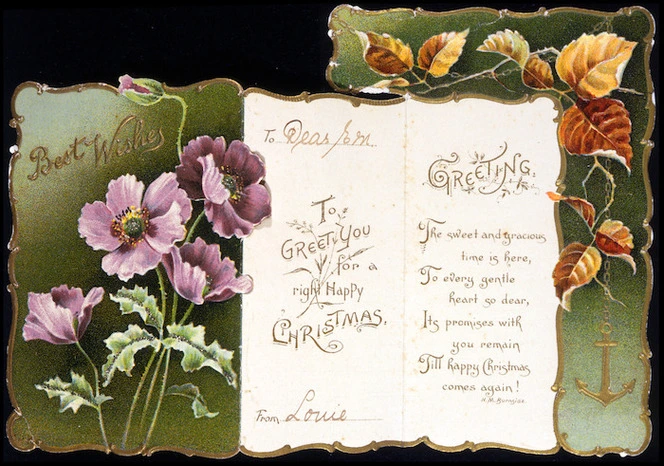 Best Wishes
To Dear Jom
To
Greet You
for a
right Happy
Christmas.
From Louie
Greeting.
The sweet and gracious
time is here,
To every gentle
heart so dear,
Its promises with
you remain
Till happy Christmas
comes again!
H. M. Burnside.